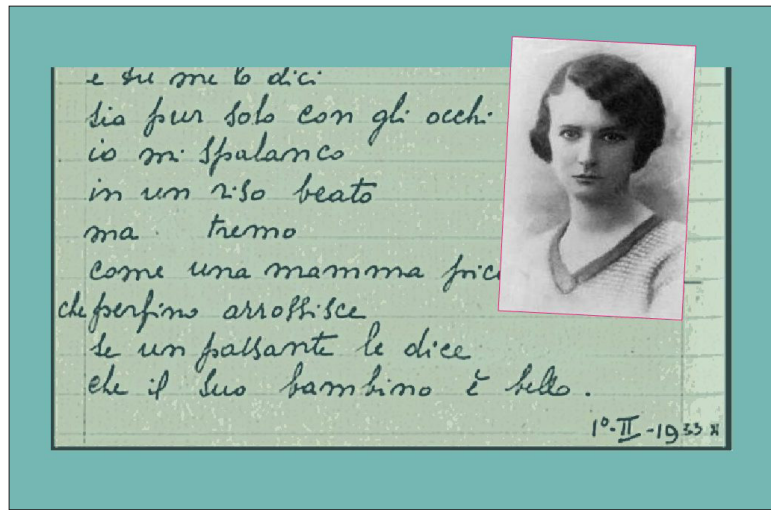 e tu me lo dici
sia pur solo con gli occhi
io mi spalanco
in un riso beato
ma tremo
come una mamma picc
che perfino arrossisce
se un passante le dice
che il suo bambino è bello.
1º-II-1933 XI